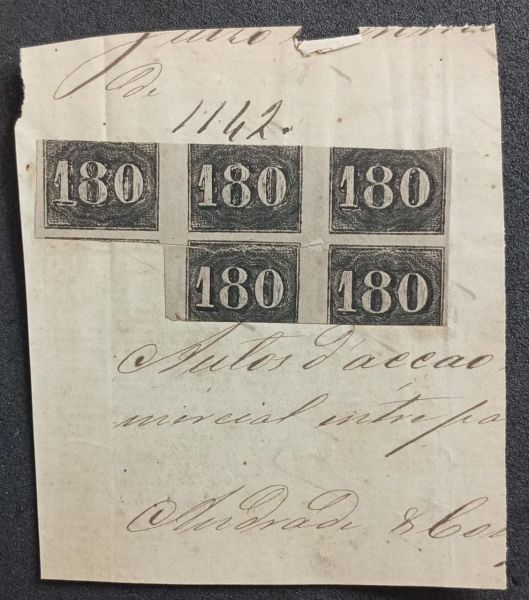 de
1142.
180 180 180
180 180
Autos d'accao
mercial entre pa
Andrade & Com